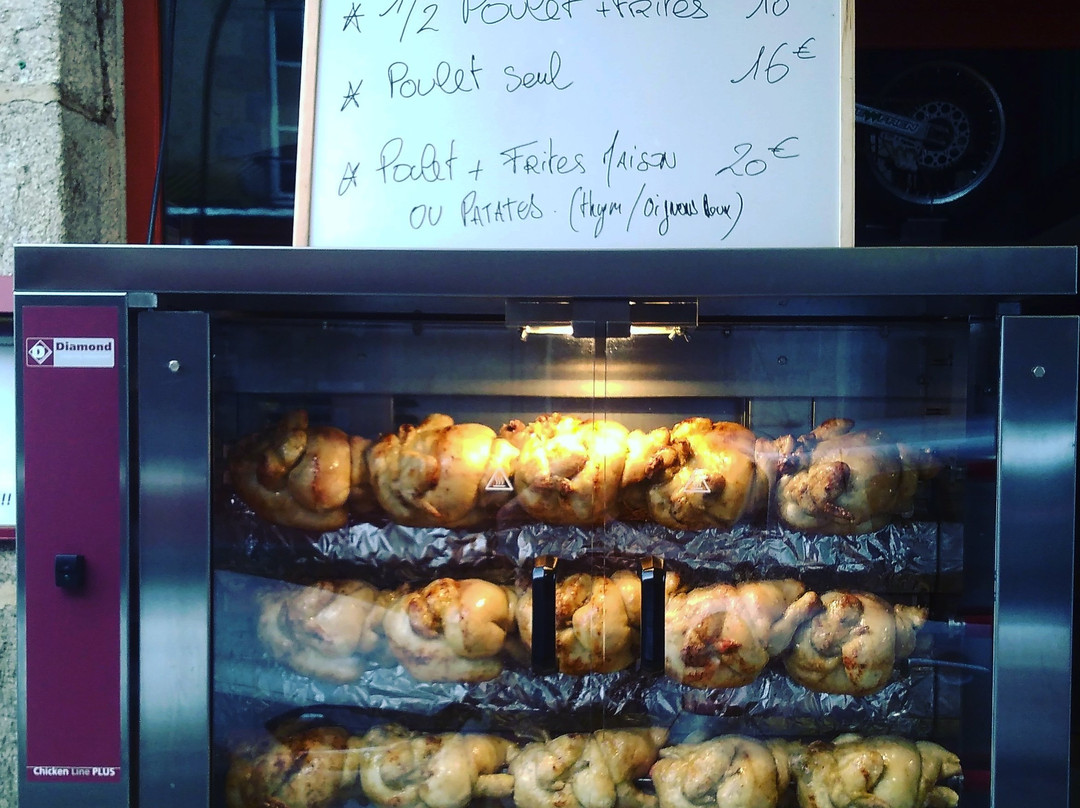 * 1/2 Poulet + Frites 10
* Poulet seul 16€
* Poulet + Frites Maison 20€
OU PATATES. (thym/oignons doux)
Diamond
D
!!
Chicken Line PLUS